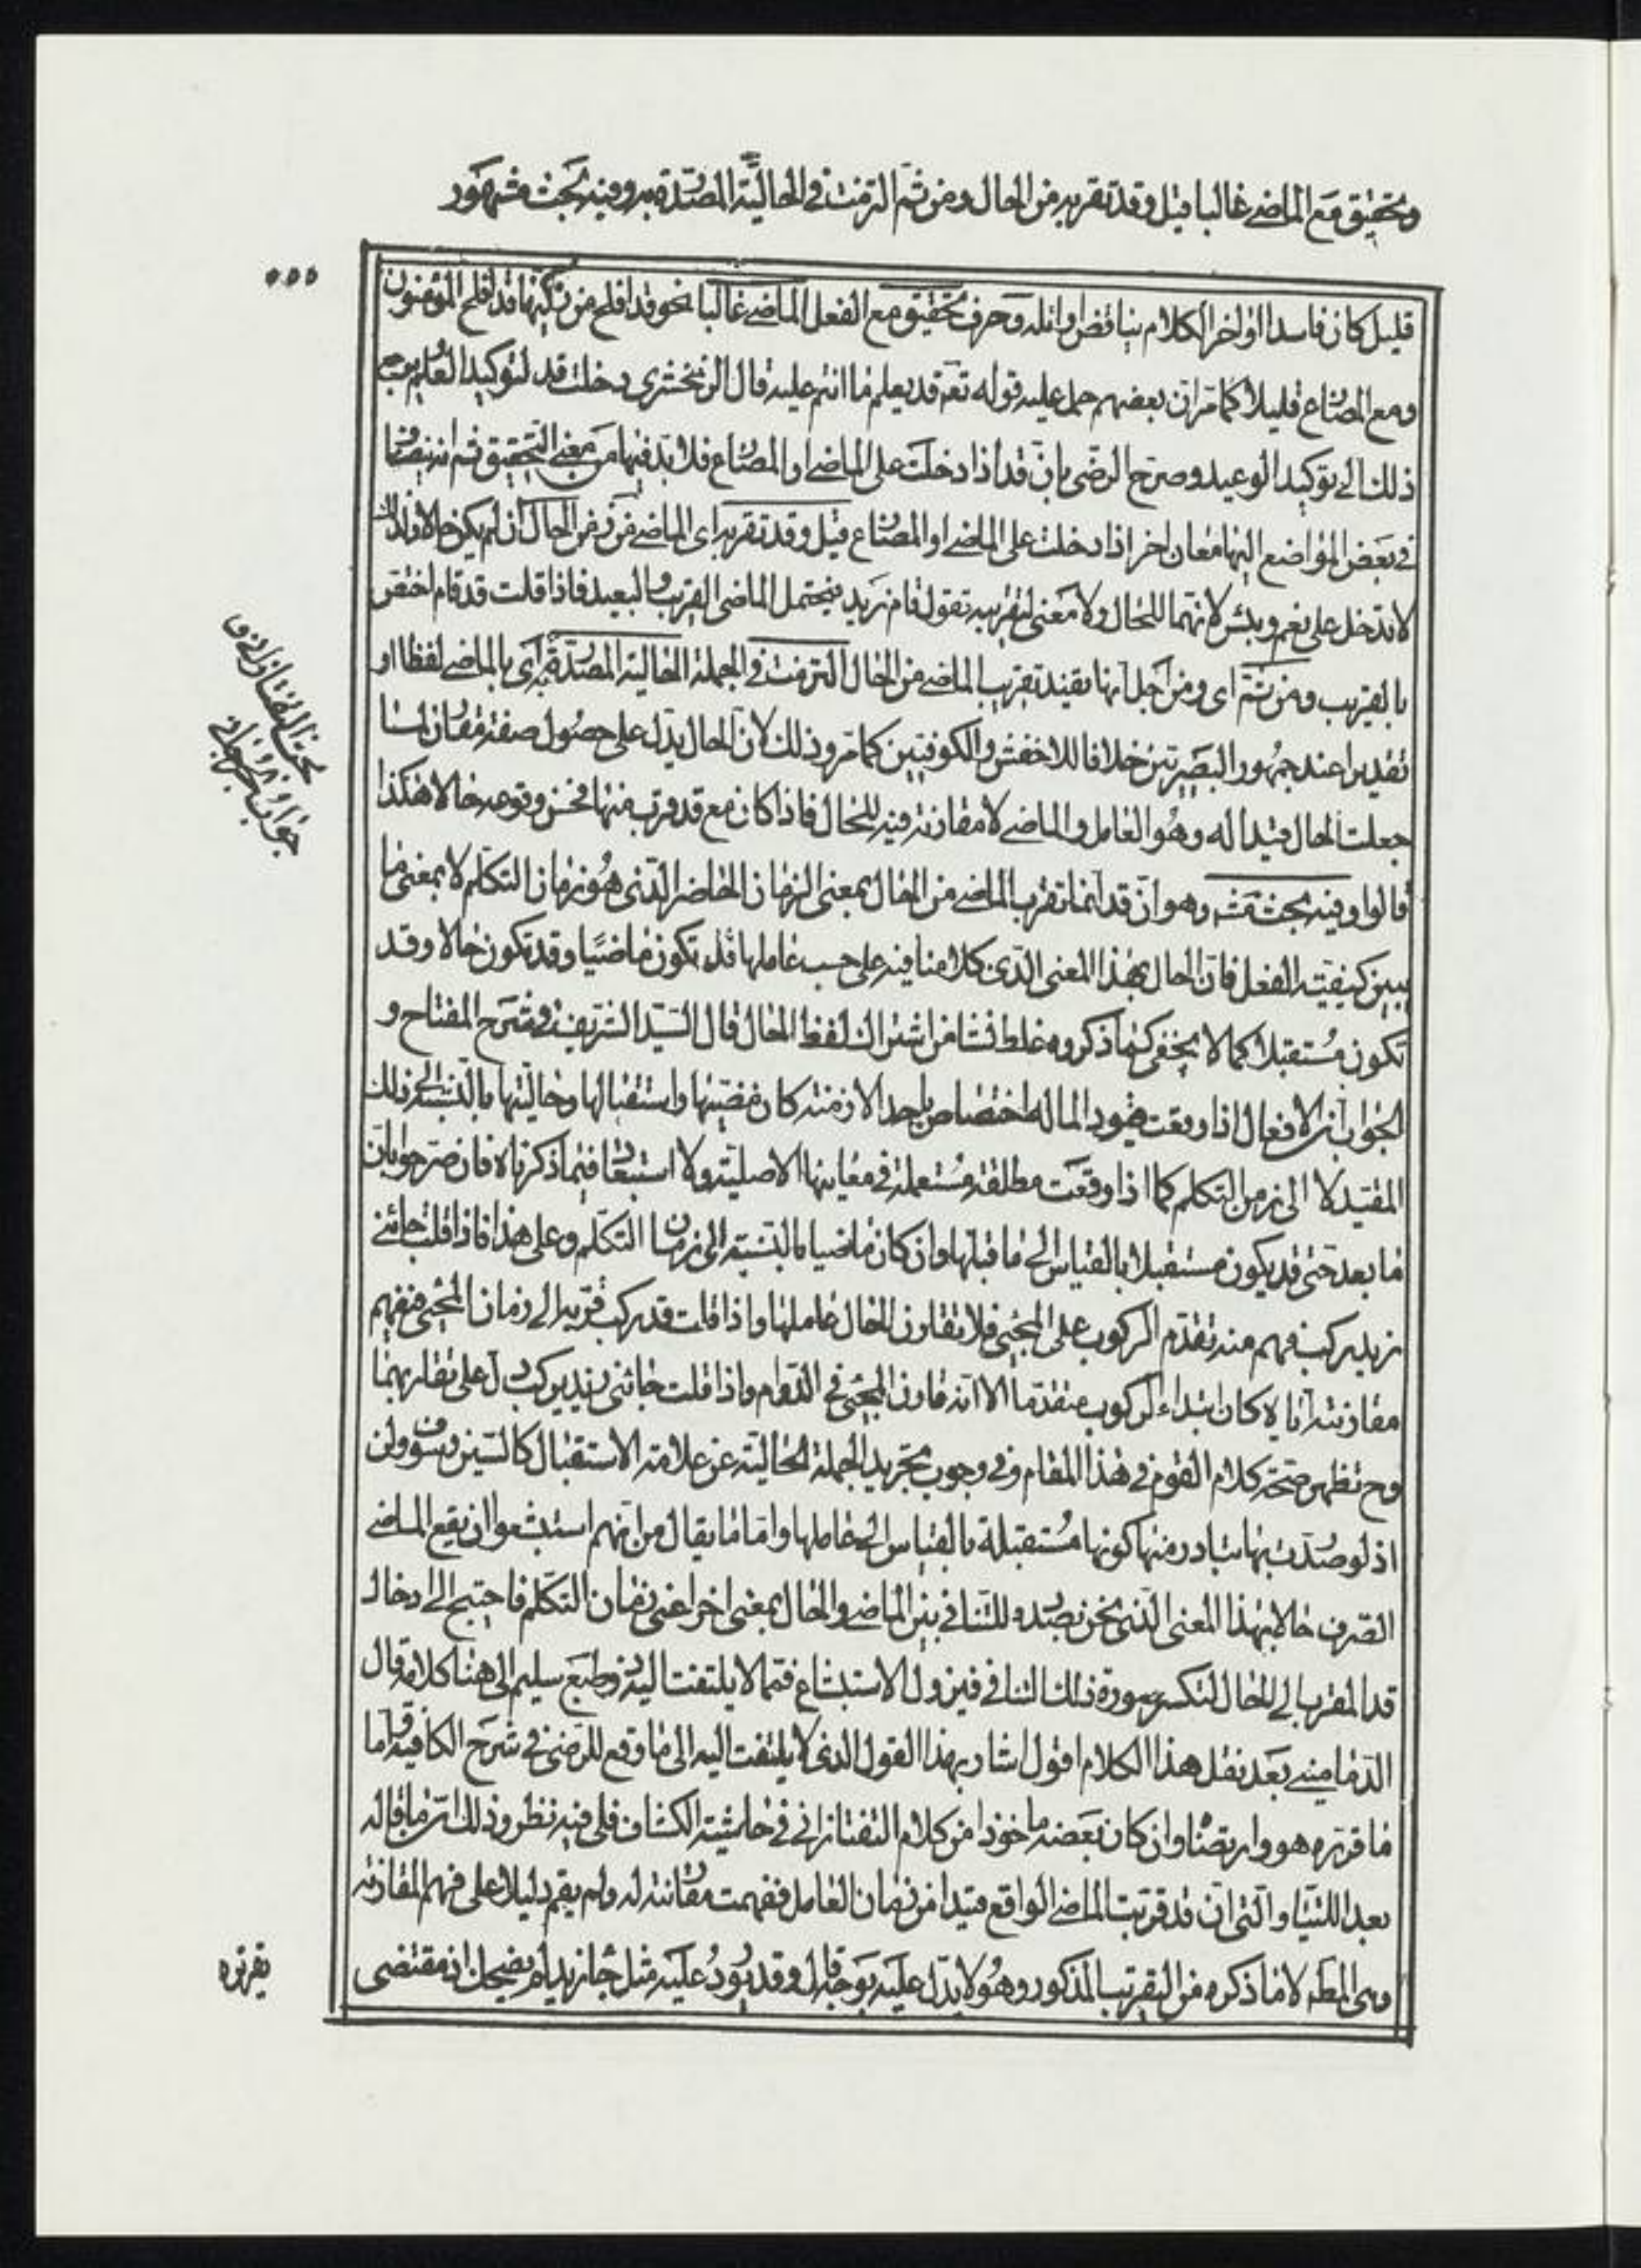 وتحقيق مع الماضي غالبا قيل وقد تقربه من الحال ومن ثم التزمت في الحالية المصدرة به وفيه بحث مشهور
قليل كان فاسدا اذ اخر الكلام يناقض اوله وحرف تحقيق مع الفعل الماضي غالبا نحو قد افلح من زكيها قد افلح المؤمنون
ومع المضارع قليلا كما مر ان بعضهم حمل عليه قوله تعه قد يعلم ما انتم عليه قال الزمخشري دخلت قد لتوكيد العلم ويرجع
ذلك الى توكيد الوعيد وصرح الرضى بان قد اذا دخلت على الماضي او المضارع فلا بد فيها من معنى التحقيق ثم انه يضاف
في بعض المواضع اليها معان اخر اذا دخلت على الماضي او المضارع قيل وقد تقربه اى الماضي من زمن الحال ان لم يكن حالا ولذلك
لا تدخل على نعم وبئس لانهما للحال ولا معنى لتقريبه تقول قام زيد فيحتمل الماضى القريب والبعيد فاذا قلت قد قام اختص
بالقريب ومن ثم اى ومن اجل انها يفيد تقريب الماضي من الحال التزمت في الجملة الحالية المصدرة به اى بالماضي لفظا او
تقديرا عند جمهور البصريين خلافا للاخفش والكوفيين كما مر وذلك لان الحال يدل على حصول صفة مقارن لما
جعلت الحال قيدا له وهو العامل والماضي لا مقارنة فيه للحال فاذا كان مع قد قرب منها فحسن وقوعه حالا هكذا
قالوا وفيه بحث مشه وهو ان قد انما تقرب الماضي من الحال بمعنى الزمان الحاضر الذى هو زمان التكلم لا بمعنى ما
يبين كيفية الفعل فان الحال بهذا المعنى الذى كلامنا فيه على حسب عاملها قد تكون ماضيا وقد تكون حالا وقد
تكون مستقبلا كما لا يخفى فما ذكروه غلط نشا من اشتراك لفظ الحال قال السيد الشريف في شرح المفتاح و
الجواب ان الافعال اذا وقعت قيودا لما له اختصاص باحد الازمنة كان مضيها واستقبالها وحاليتها بالنسبة الى ذلك
المقيد لا الى زمن التكلم كما اذا وقعت مطلقة مستعملة في معانيها الاصلية ولا استبعاد فيما ذكرناه فان صرحوا بان
ما بعد حتى قد يكون مستقبلا بالقياس الى ما قبلها وان كان ماضيا بالنسبة الى زمان التكلم وعلى هذا فاذا قلت جائني
زيد يركب فهم منه تقدم الركوب على المجيئ فلا تقارن الحال عاملها واذا قلت قد يركب قربته الى زمان المجيئ فيفهم
مقارنته اياه كان ابتداء الركوب متقدما الا انه قارن المجيئ في الدوام واذا قلت جائني زيد يركب دل على تقاربهما
وح تظهر صحة كلام القوم في هذا المقام وفي وجوب تجريد الجملة الحالية عن علامة الاستقبال كالسين وسوف ولن
اذ لو صدرت بها تبادر منها كونها مستقبلة بالقياس الى عاملها واما ما يقال من انهم استبشعوا ان يقع الماضي
الصرف حالا بهذا المعنى الذى نحن بصدده للتنافي بين الماضي والحال بمعنى اخر اعنى زمان التكلم فاحتيج الى ادخال
قد المقرب الى الحال لتكسر سورة ذلك التنافي فيزول الاستبشاع فمما لا يلتفت اليه ذو طبع سليم الى هنا كلامه قال
الدماميني بعد نقل هذا الكلام اقول اشار بهذا القول الذى لا يلتفت اليه الى ما وقع للرضى في شرح الكافية واما
ما قرره هو وارتضاه وان كان بعضه ماخوذا من كلام التفتازاني في حاشية الكشاف فلى فيه نظر وذلك ان ما قاله
بعد اللتيا والتى ان قد قربت الماضي الواقع قيدا من زمان العامل ففهمت مقارنته له ولم يقم دليلا على فهم المقارنة
وهى المطه لا ما ذكره من التقريب المذكور وهو لا يدل عليه بوجه قال وقد يورد عليه مثل جاء زيد لم يضحك اذ مقتضى
تقريره
بحث التفتازاني و
جواب